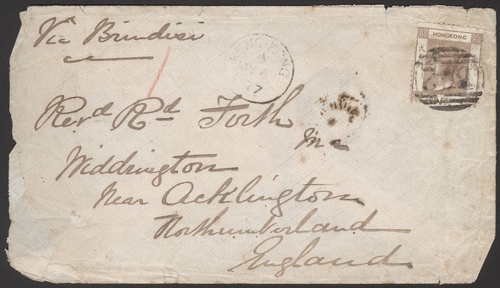 Via Brindisi
HONGKONG
Revd Rd Forth
Widdrington
Near Acklington
Northumberland
England